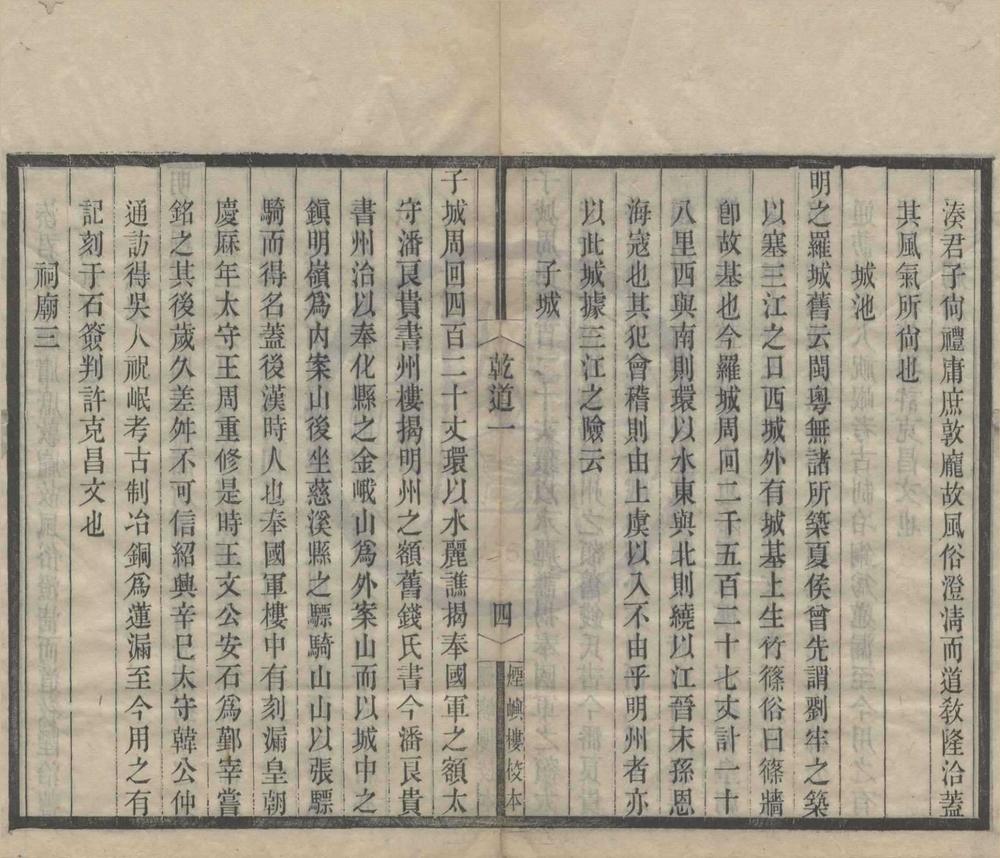 湊君子尙禮庸庶敦龐故風俗澄淸而道敎隆洽蓋
其風氣所尙也
城池
明之羅城舊云閩粤無諸所築夏侯曾先謂劉牢之築
以塞三江之口西城外有城基上生竹篠俗曰篠牆
卽故基也今羅城周回二千五百二十七丈計一十
八里西與南則環以水東與北則繞以江晉末孫恩
海寇也其犯會稽則由上虞以入不由乎明州者亦
以此城據三江之險云
子城
乾道一
四
煙嶼樓校本
子城周回四百二十丈環以水麗譙揭奉國軍之額太
守潘良貴書州樓揭明州之額舊錢氏書今潘良貴
書州治以奉化縣之金峨山爲外案山而以城中之
鎭明嶺爲内案山後坐慈溪縣之驃騎山山以張驃
騎而得名蓋後漢時人也奉國軍樓中有刻漏皇朝
慶厤年太守王周重修是時王文公安石爲鄞宰嘗
銘之其後歲久差舛不可信紹興辛巳太守韓公仲
通訪得吳人祝岷考古制冶銅爲蓮漏至今用之有
記刻于石簽判許克昌文也
祠廟三